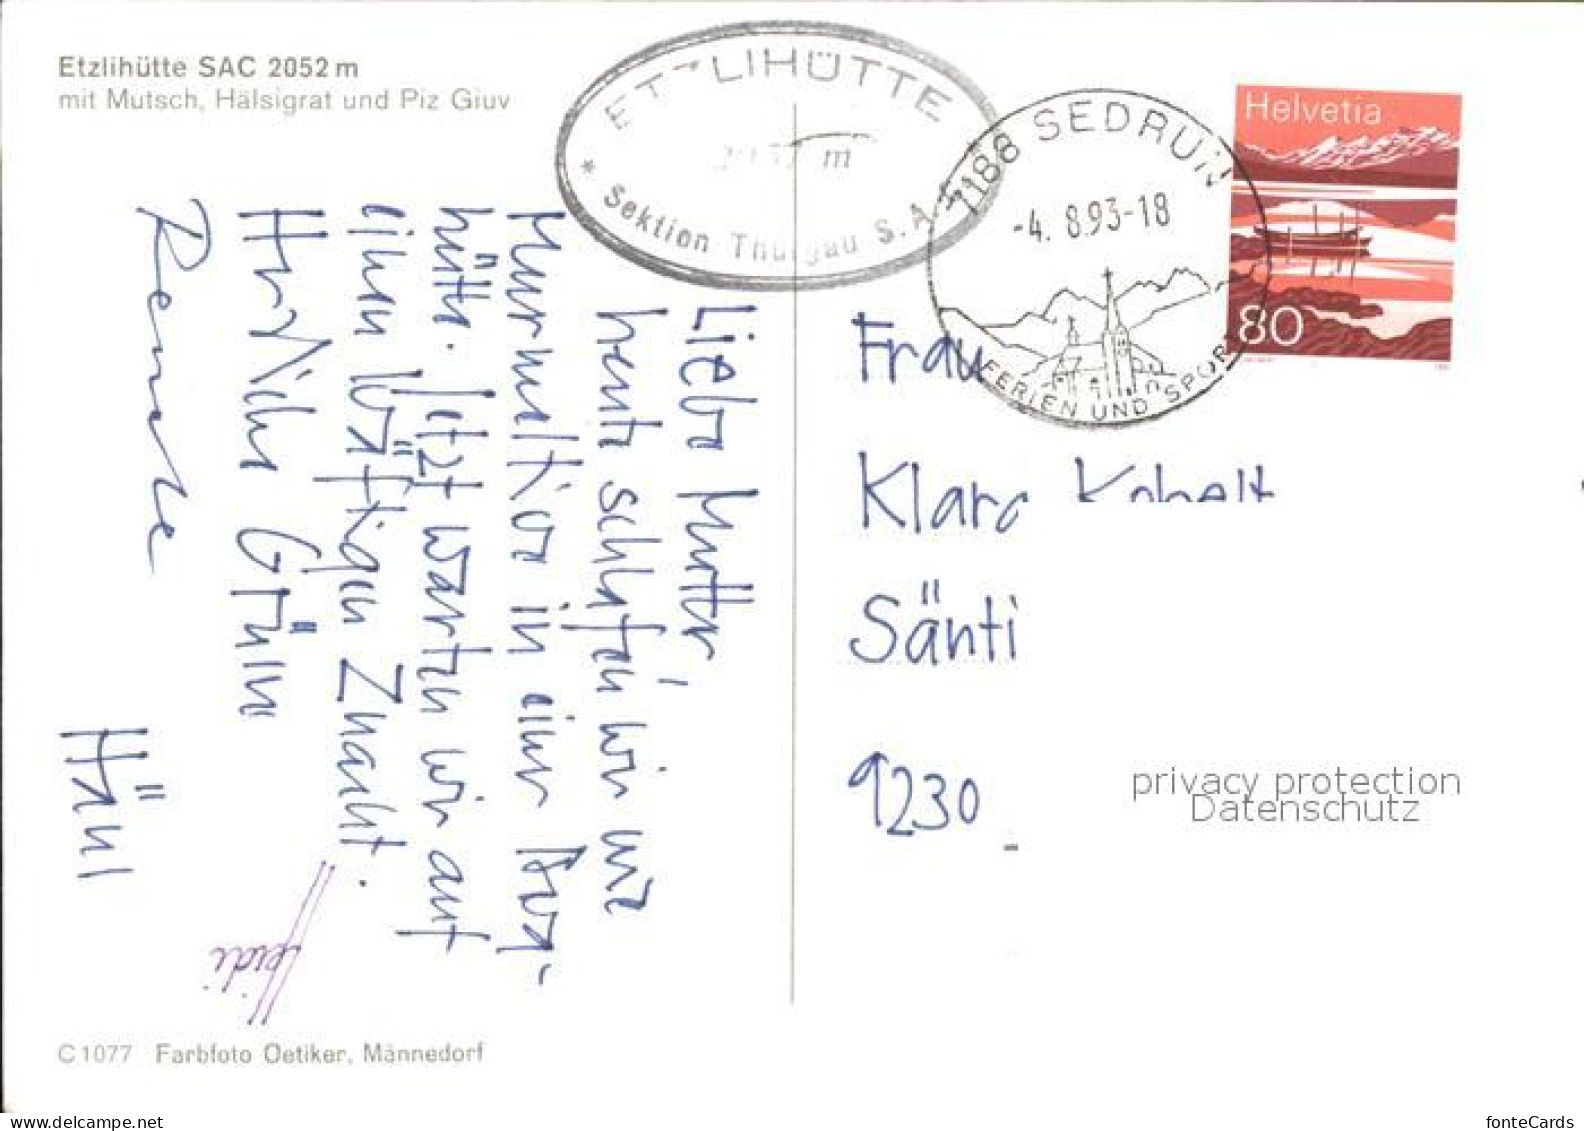 Etzlihütte SAC 2052 m
mit Mutsch, Hälsigrat und Piz Giuv
ETZLIHÜTTE
2052 m
* Sektion Thurgau S.A.
7188 SEDRUN
-4. 8.93-18
FERIEN UND SPORT
Helvetia
80
Liebe Mutter,
heute schlafen wir mit
Murmeli in einer Berg-
hütte. Jetzt warten wir auf
einen kräftigen Znacht.
Herzlichen Grüssen
Renate
Häni
Heidi
Frau
Klara
Sänti
9230
privacy protection
Datenschutz
C 1077 Farbfoto Oetiker, Männedorf
www.delcampe.net
fonteCards